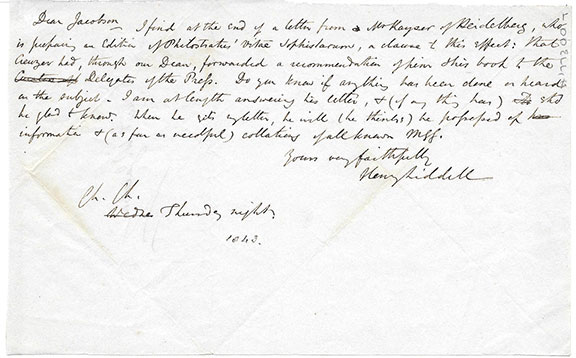 Dear Jacobson I find at the end of a letter from a Mr Kayser of Heidelberg, who
is preparing an Edition of Philostratus' Vitæ Sophistarum, a clause to this effect: that
Creuzer had, through our Dean, forwarded a recommendation of him & his book to the
Delegates of the Press. Do you know if any thing has been done or heard
on the subject. I am at length answering his letter, & (if any thing has) shd
be glad to know. When he gets my letter, he will (he thinks) be possessed of
information & (as far as needful) collations of all known MSS.
Yours very faithfully
Henry Liddell
Ch. Ch.
Wedne Thursday night.
1843.